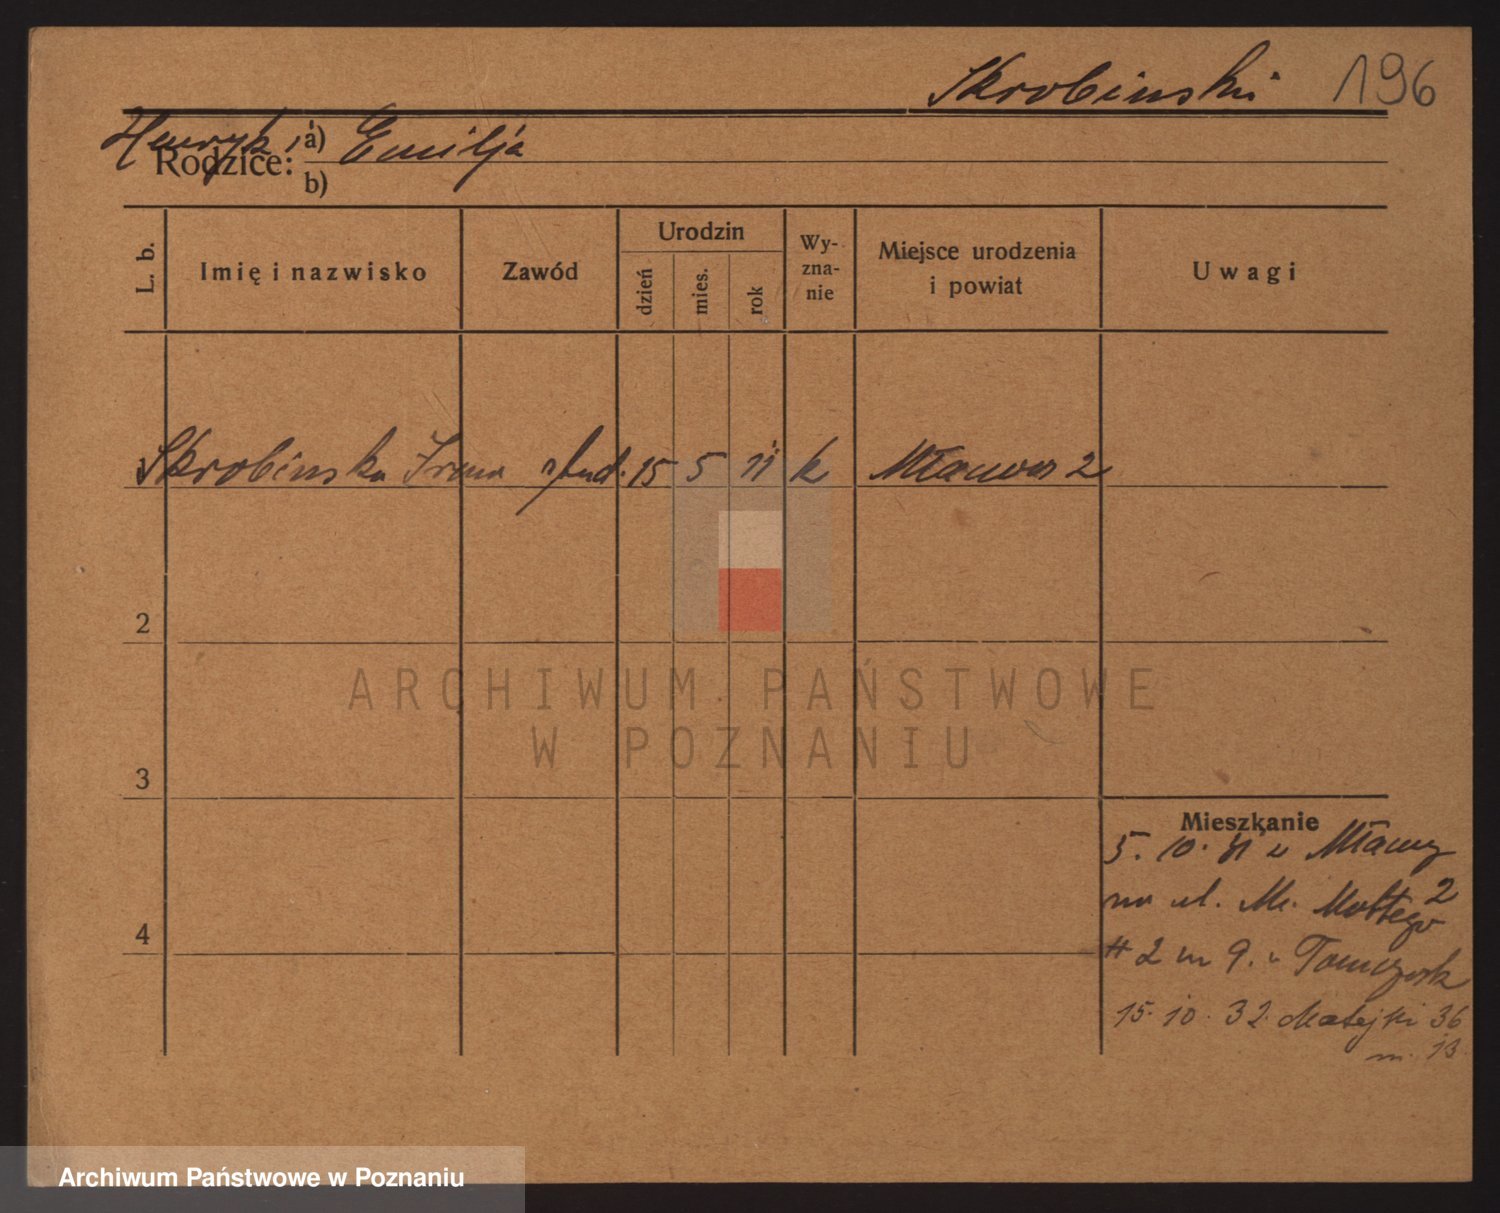 Skrobinski 196
Henryk i Emilja
Rodzice: a)
b)
L. b.
Imię i nazwisko
Zawód
Urodzin
dzień
mies.
rok
Wy-
zna-
nie
Miejsce urodzenia
i powiat
Uwagi
Skrobinska Irena stud. 15 5 11 k Mława 2
2
3
4
Mieszkanie
5. 10. 31 z Mławy 2
na ul. Mottego
# 2 m 9. Tomczak
15. 10. 32. Matejki 36
m. 13
ARCHIWUM PAŃSTWOWE
W POZNANIU
Archiwum Państwowe w Poznaniu